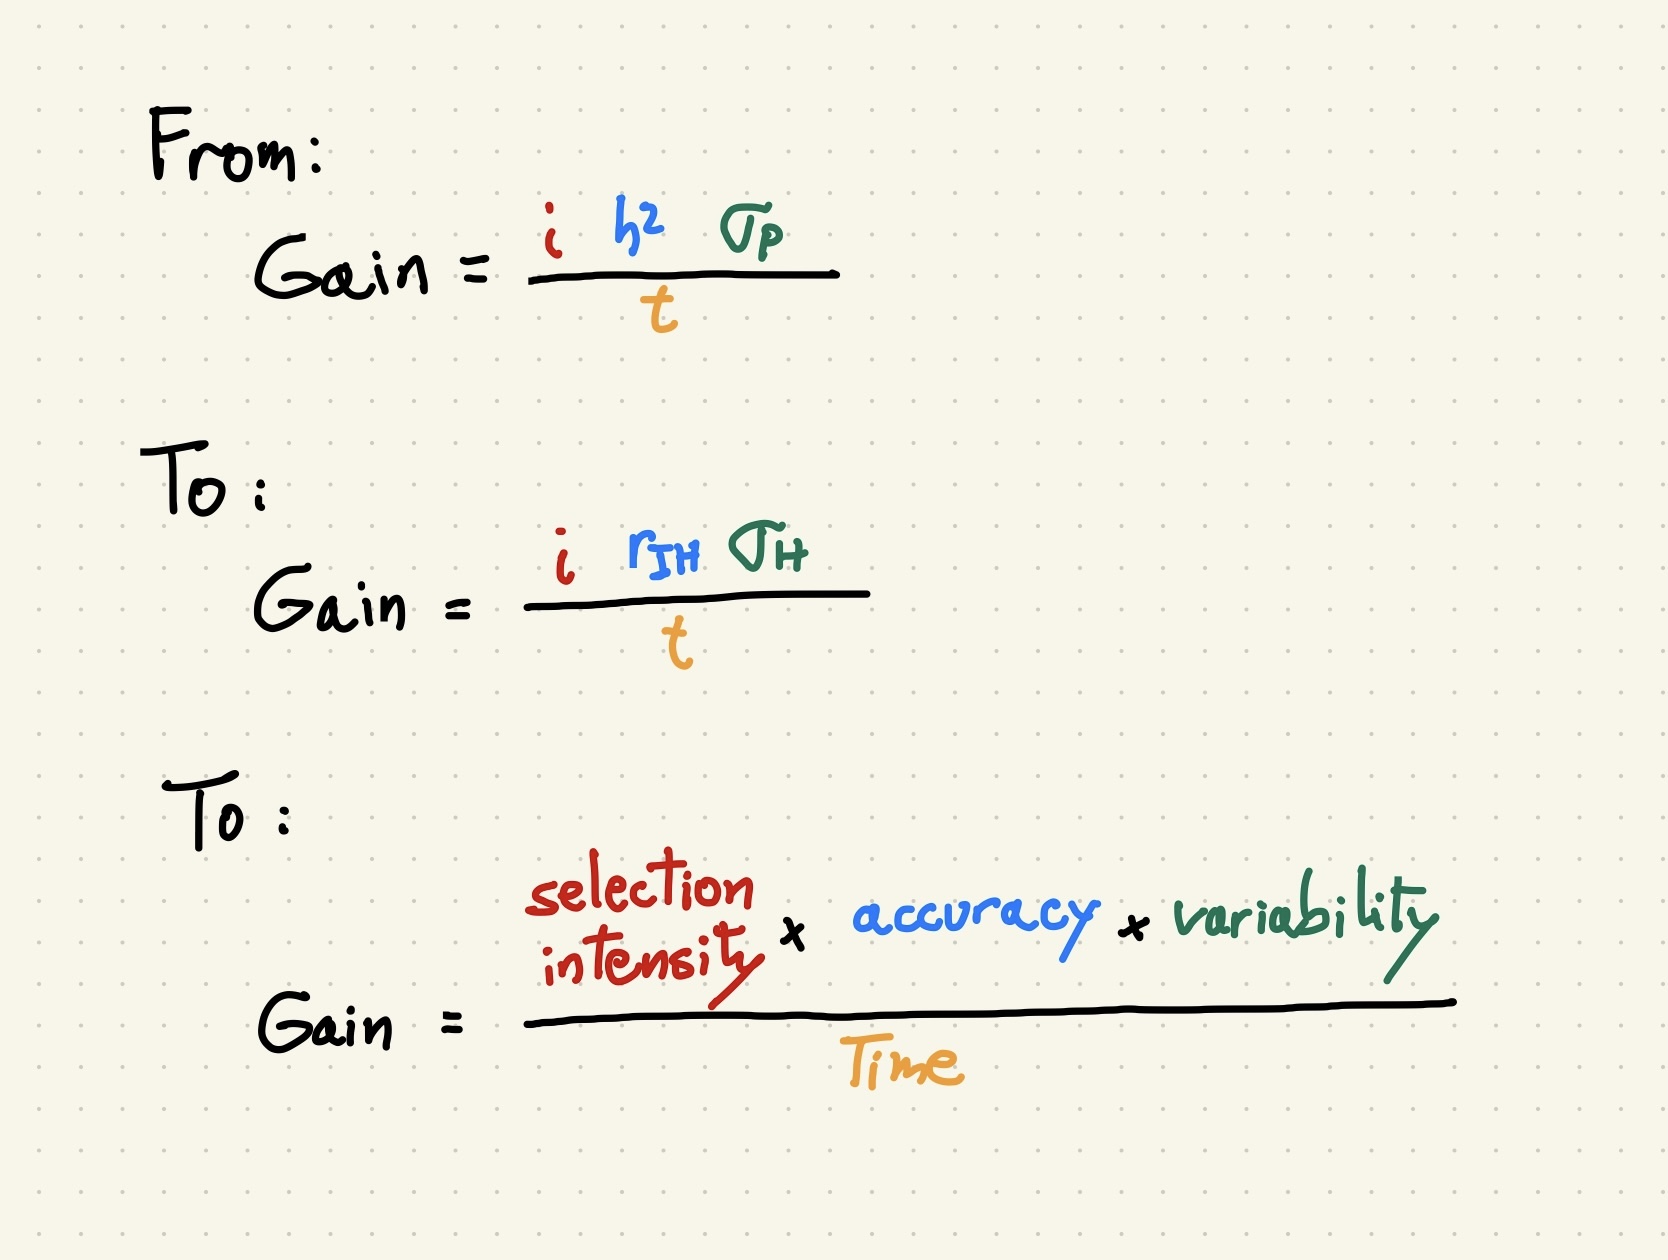 From:
Gain = i h² σp
t
To:
Gain = i rIH σH
t
To:
selection
intensity x accuracy x variability
Gain =
Time